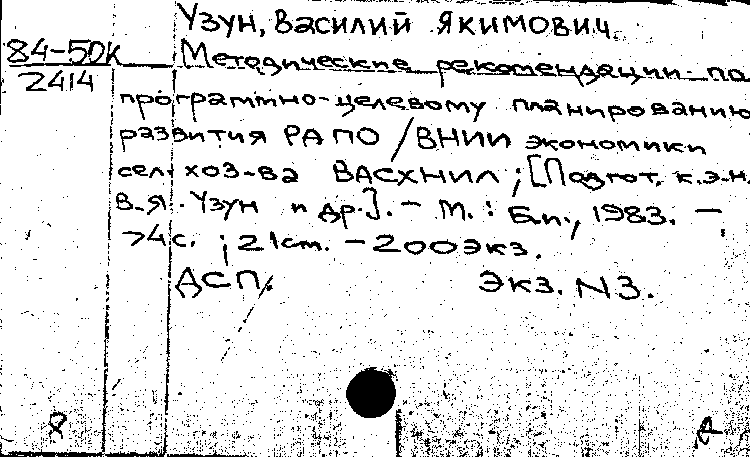 Узун, Василий Якимович.
84-50к Методические рекомендации по
2414 программно-целевому планированию
развития РАПО / ВНИИ экономики
сел. хоз-ва ВАСХНИЛ; [Подгот. к.э.н.
В.Я. Узун и др.]. - М.: Б.и., 1983. -
74 с.; 21 см. - 200 экз.
ДСП. Экз. N3.
8